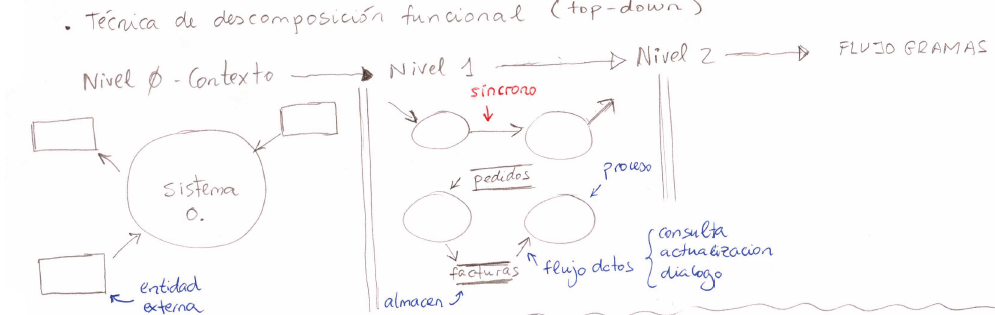 . Técnica de descomposición funcional (top-down)
Nivel 0 - Contexto
Nivel 1
Nivel 2
FLUJOGRAMAS
síncrono
sistema
0.
pedidos
proceso
facturas
flujo datos
consulta
actualizacion
dialogo
entidad
externa
almacen